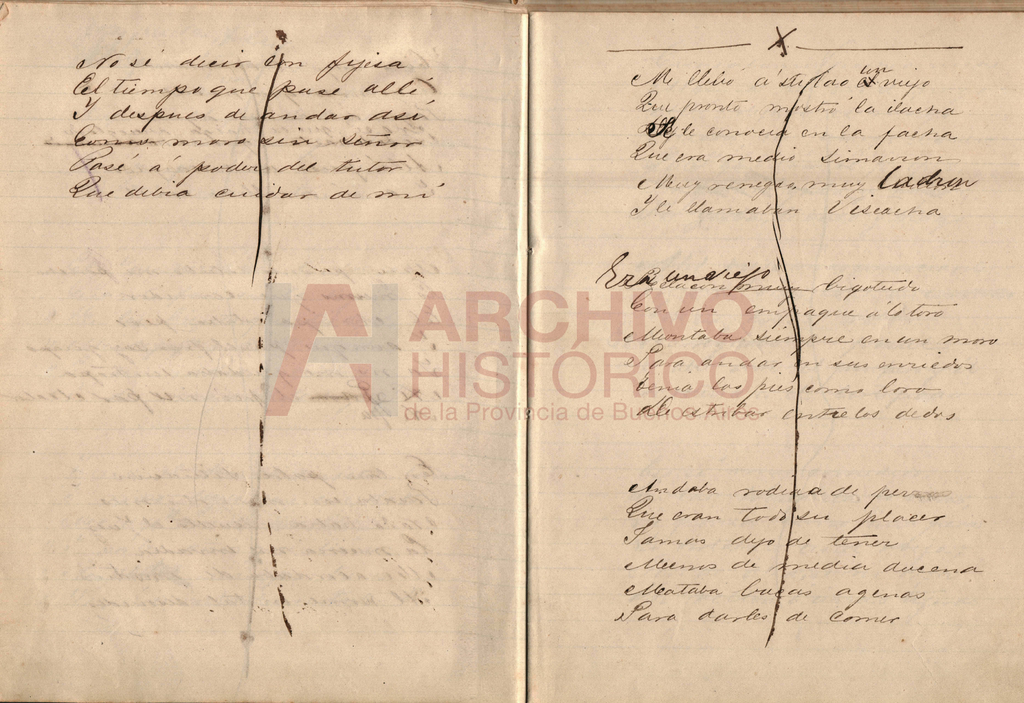 No sé decir con fijesa
El tiempo que pasé allí
Y despues de andar asi
Como moro sin señor
Pasé á poder del tutor
Que debia cuidar de mí
X
Me llebó á su lao un viejo
Que pronto mostró la ilacha
le conocia en la facha
Que era medio simarron
Muy renegao, muy ladron
Y le llamaban Viscacha
Era un viejo bigotudo
Con un empaque á lo toro
Montaba siempre en un moro
Para andar en sus enriedos
Tenia los pies como loro
De estribar entre los dedos
Andaba rodiao de perros
Que eran todo su placer
Jamas dejo de tener
Menos de media docena
Mataba bacas agenas
Para darles de comer
ARCHIVO
HISTÓRICO
de la Provincia de Buenos Aires